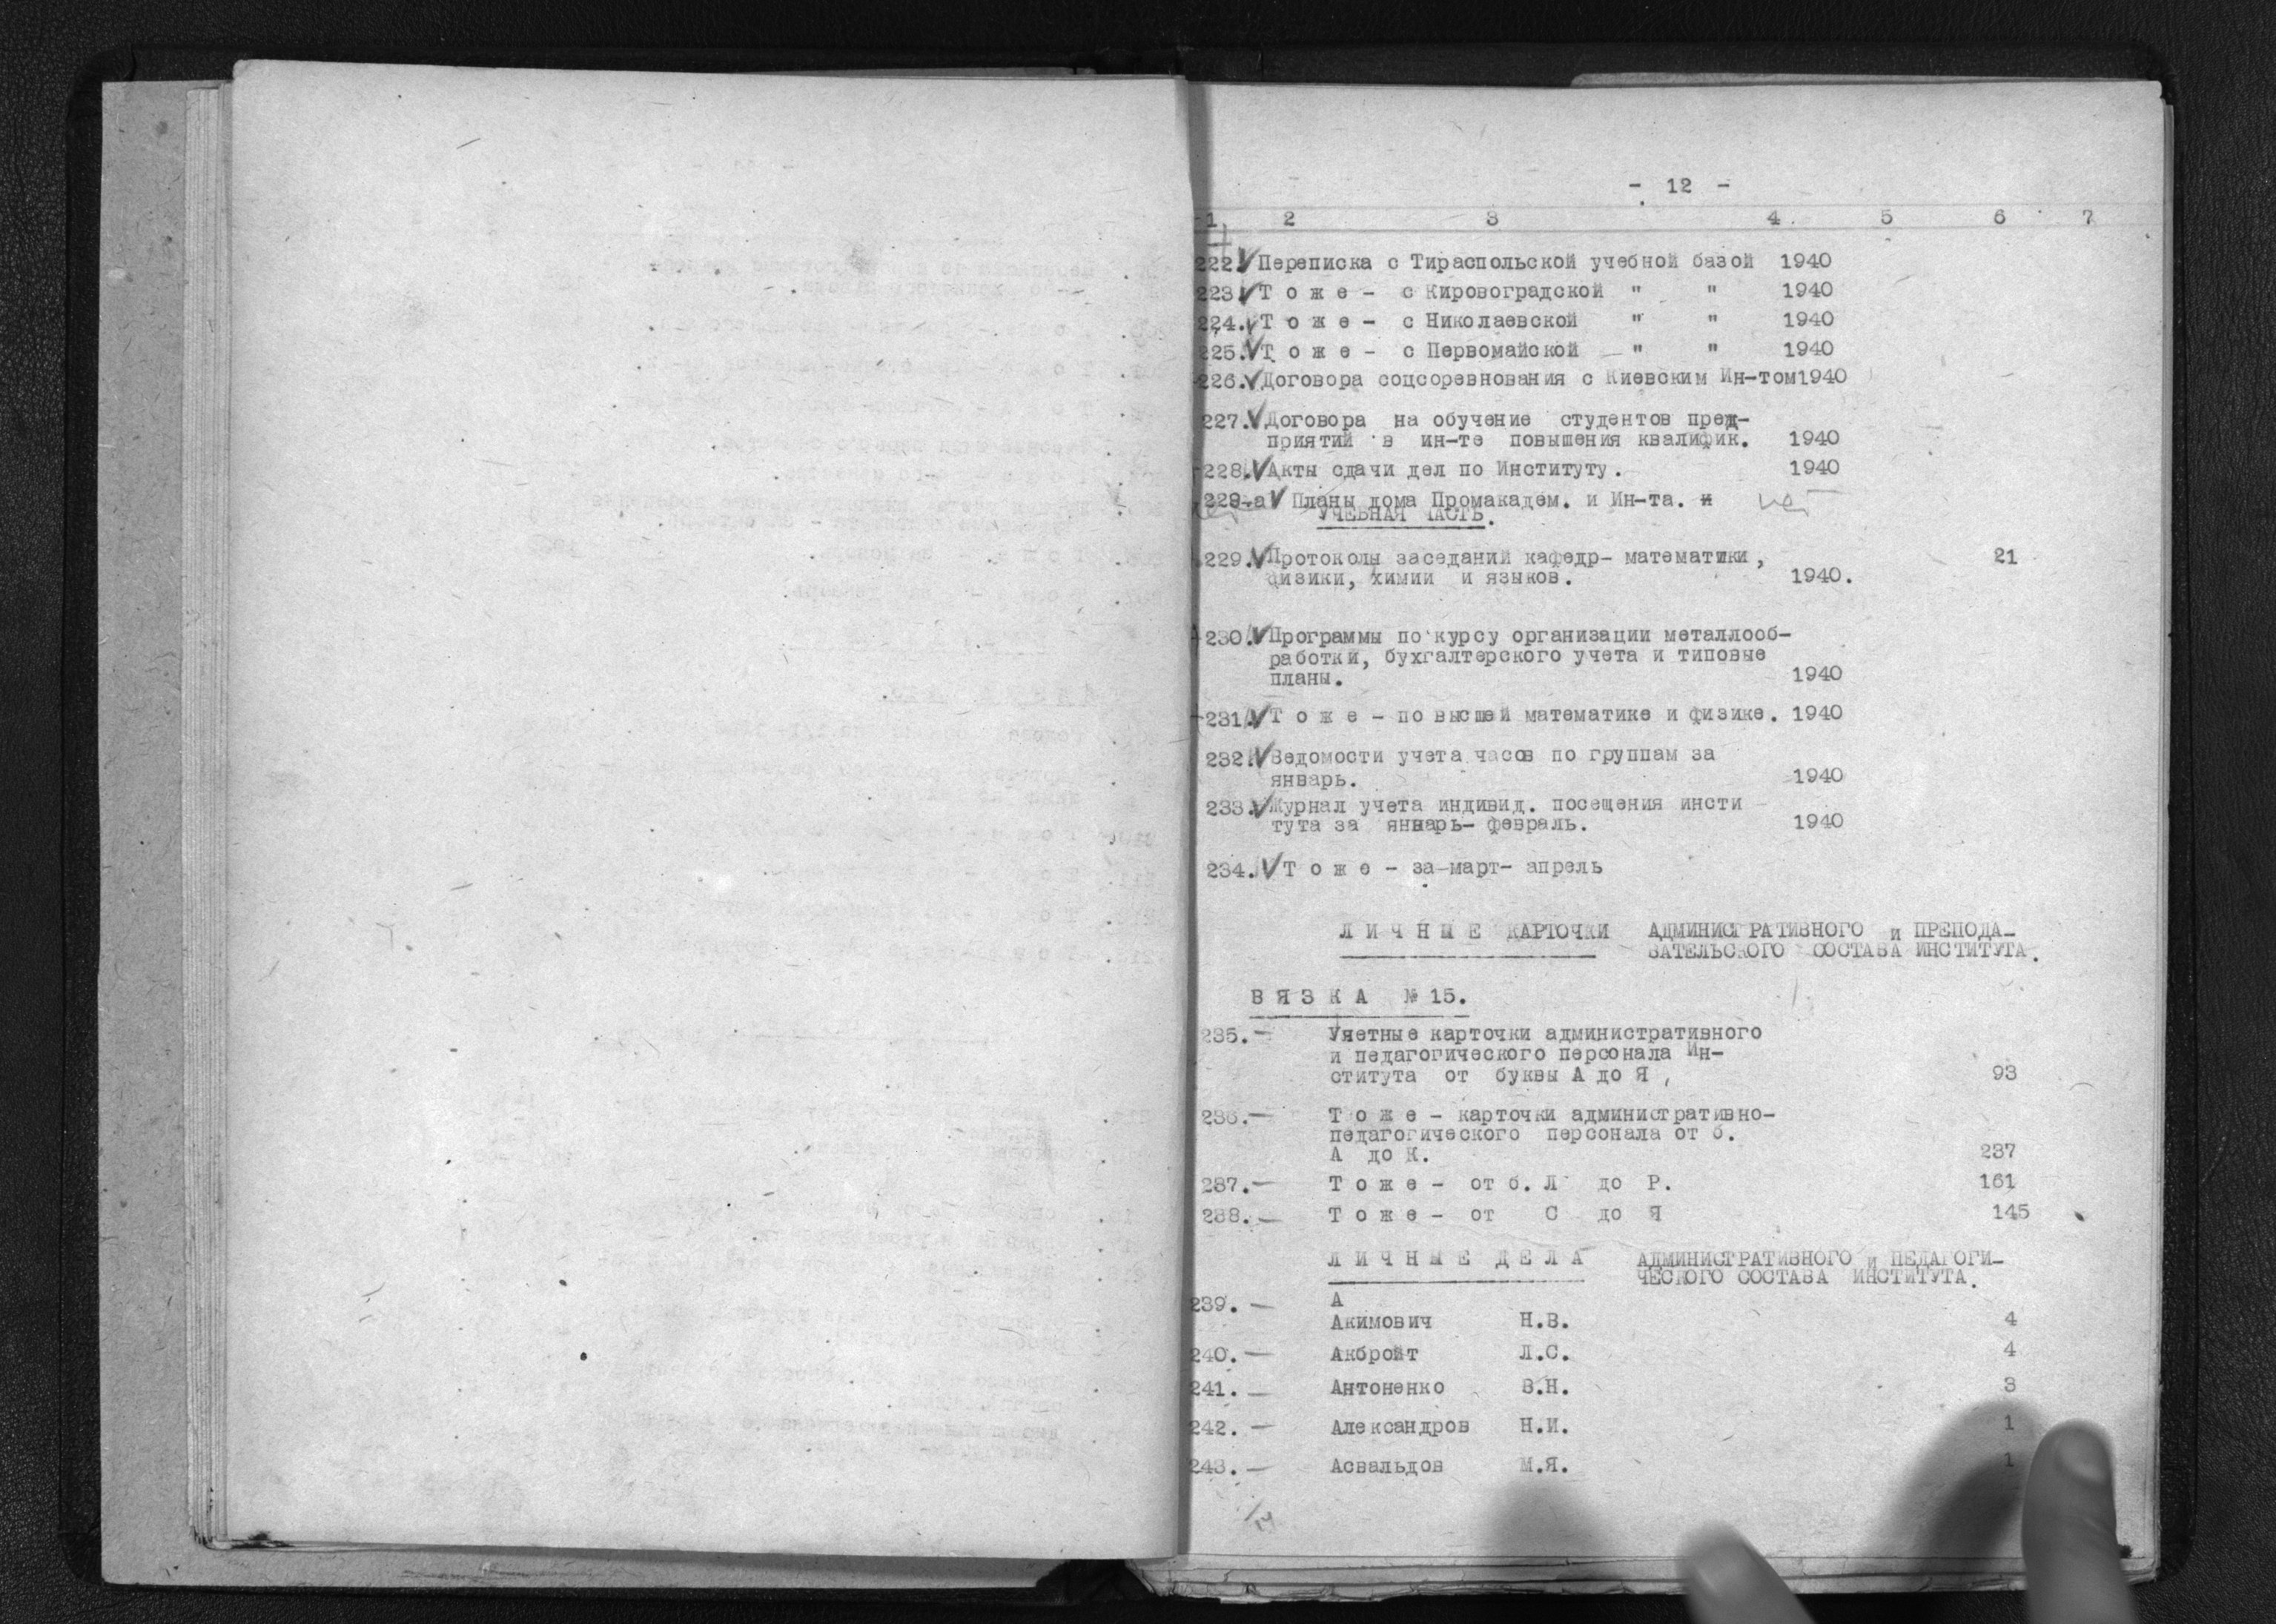 - 12 -
1 2 3 4 5 6 7
222. Переписка с Тираспольской учебной базой 1940
223. Т о ж е - с Кировоградской " " 1940
224. Т о ж е - с Николаевской " " 1940
225. Т о ж е - с Первомайской " " 1940
226. Договора соцсоревнования с Киевским Ин-том 1940
227. Договора на обучение студентов пред-
приятий в ин-те повышения квалифик. 1940
228. Акты сдачи дел по Институту. 1940
229-а Планы дома Промакадем. и Ин-та. и нет
УЧЕБНАЯ ЧАСТЬ.
229. Протоколы заседаний кафедр- математики, 21
физики, химии и языков. 1940.
230. Программы по курсу организации металлооб-
работки, бухгалтерского учета и типовые
планы. 1940
231. Т о ж е - по высшей математике и физике. 1940
232. Ведомости учета часов по группам за
январь. 1940
233. Журнал учета индивид. посещения инсти
тута за январь- февраль. 1940
234. Т о ж е - за март- апрель
Л И Ч Н Ы Е КАРТОЧКИ АДМИНИСТРАТИВНОГО и ПРЕПОДА-
ВАТЕЛЬСКОГО СОСТАВА ИНСТИТУТА.
В Я З К А № 15.
235.- Учетные карточки административного
и педагогического персонала Ин-
ститута от буквы А до Я, 93
236.- Т о ж е - карточки административно-
педагогического персонала от б.
А до К. 237
237.- Т о ж е - от б. Л до Р. 161
238.- Т о ж е - от С до Я 145
Л И Ч Н Ы Е Д Е Л А АДМИНИСТРАТИВНОГО и ПЕДАГОГИ-
ЧЕСКОГО СОСТАВА ИНСТИТУТА.
239. - А
Акимович Н.В. 4
240. - Акбройт Л.С. 4
241. - Антоненко В.Н. 3
242. - Александров Н.И. 1
243. - Асвальдов М.Я. 1
14